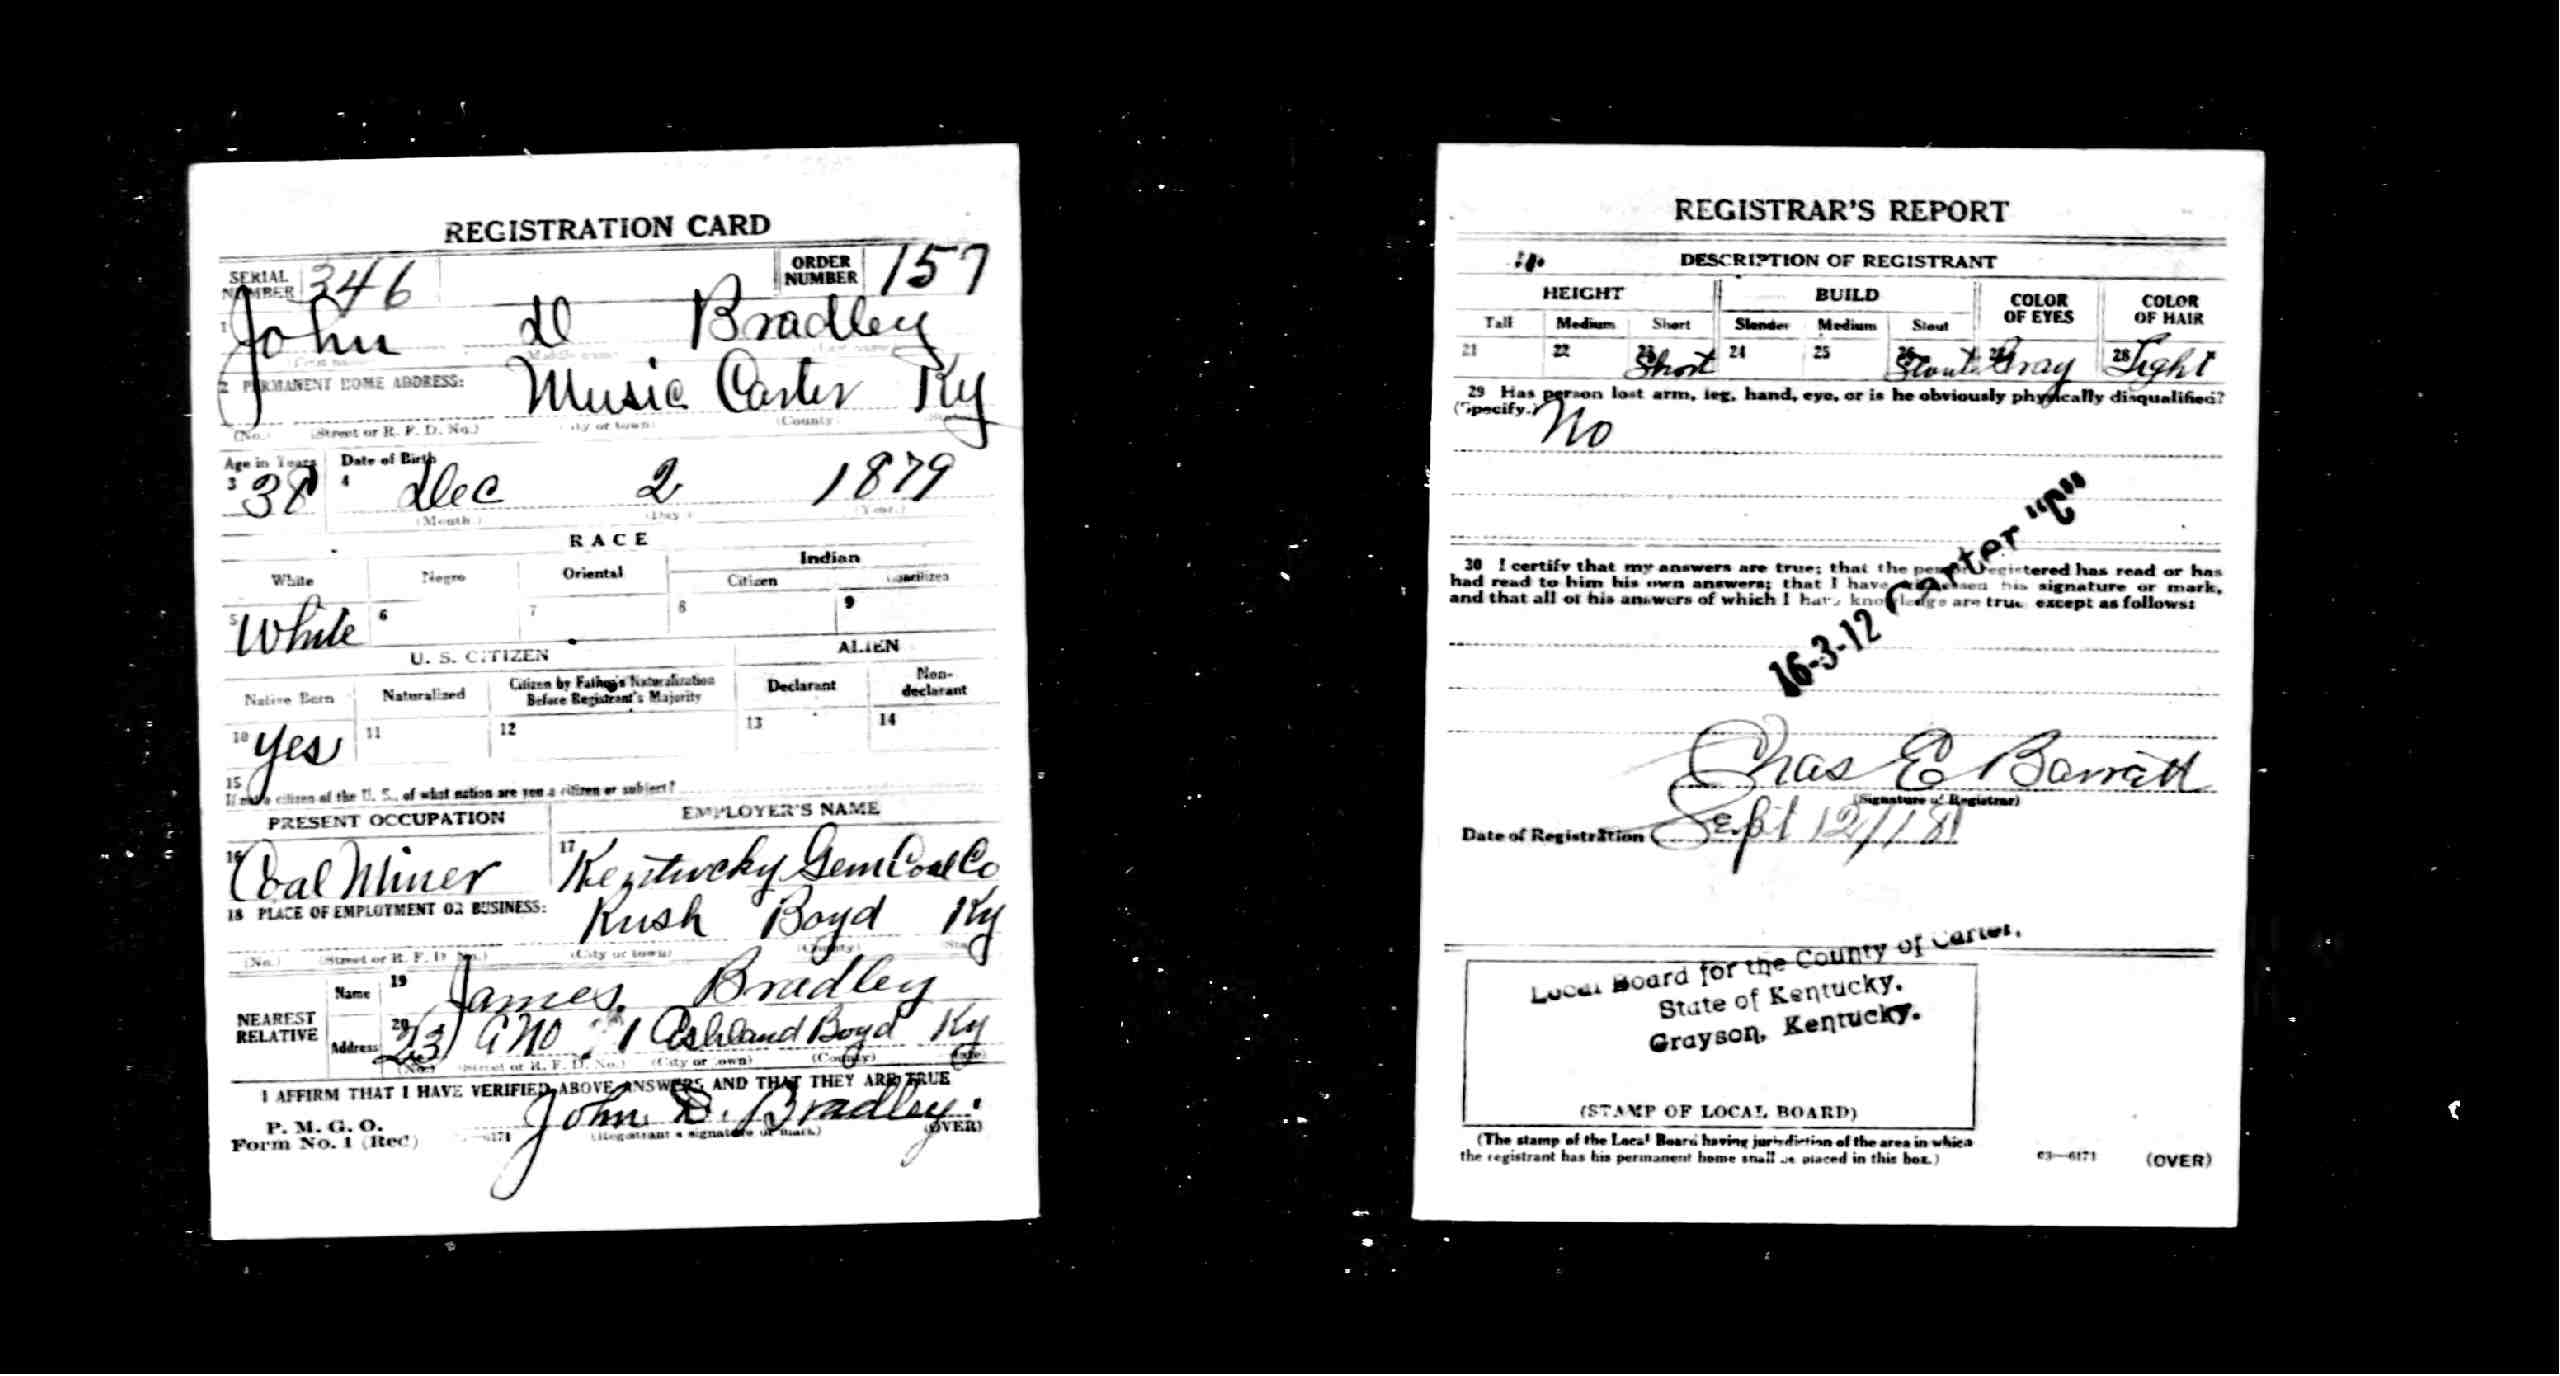 REGISTRATION CARD
SERIAL NUMBER 346 ORDER NUMBER 157
1 John D Bradley
(First name) (Middle name) (Last name)
2 PERMANENT HOME ADDRESS: Music Carter Ky
(No.) (Street or R. F. D. No.) (City or town) (County) (State)
Age in Years Date of Birth
3 38 4 Dec 2 1879
(Month.) (Day.) (Year.)
RACE
White Negro Oriental Indian
Citizen Noncitizen
5 White 6 7 8 9
U. S. CITIZEN ALIEN
Native Born Naturalized Citizen by Father's Naturalization Before Registrant's Majority Declarant Non-declarant
10 Yes 11 12 13 14
15
If not a citizen of the U. S., of what nation are you a citizen or subject?
PRESENT OCCUPATION EMPLOYER'S NAME
16 Coal Miner 17 Kentucky Gem Coal Co
18 PLACE OF EMPLOYMENT OR BUSINESS: Rush Boyd Ky
(No.) (Street or R. F. D. No.) (City or town) (County) (State)
NEAREST RELATIVE Name 19 James Bradley
Address 20 23 1 Ashland Boyd Ky
(No.) (Street or R. F. D. No.) (City or town) (County) (State)
I AFFIRM THAT I HAVE VERIFIED ABOVE ANSWERS AND THAT THEY ARE TRUE
P. M. G. O.
Form No. 1 (Red) 6171 John D. Bradley.
(Registrant's signature or mark) (OVER)
REGISTRAR'S REPORT
DESCRIPTION OF REGISTRANT
HEIGHT BUILD COLOR OF EYES COLOR OF HAIR
Tall Medium Short Slender Medium Stout
21 22 23 Short 24 25 26 Stout 27 Gray 28 Light
29 Has person lost arm, leg, hand, eye, or is he obviously physically disqualified?
(Specify.) No
30 I certify that my answers are true; that the person registered has read or has
had read to him his own answers; that I have witnessed his signature or mark,
and that all of his answers of which I have knowledge are true, except as follows:
16-3-12 Carter "C"
Chas E Barratt
(Signature of Registrar)
Date of Registration Sept 12/18
Local Board for the County of Carter,
State of Kentucky.
Grayson, Kentucky.
(STAMP OF LOCAL BOARD)
(The stamp of the Local Board having jurisdiction of the area in which
the registrant has his permanent home shall be placed in this box.)
03—6171 (OVER)